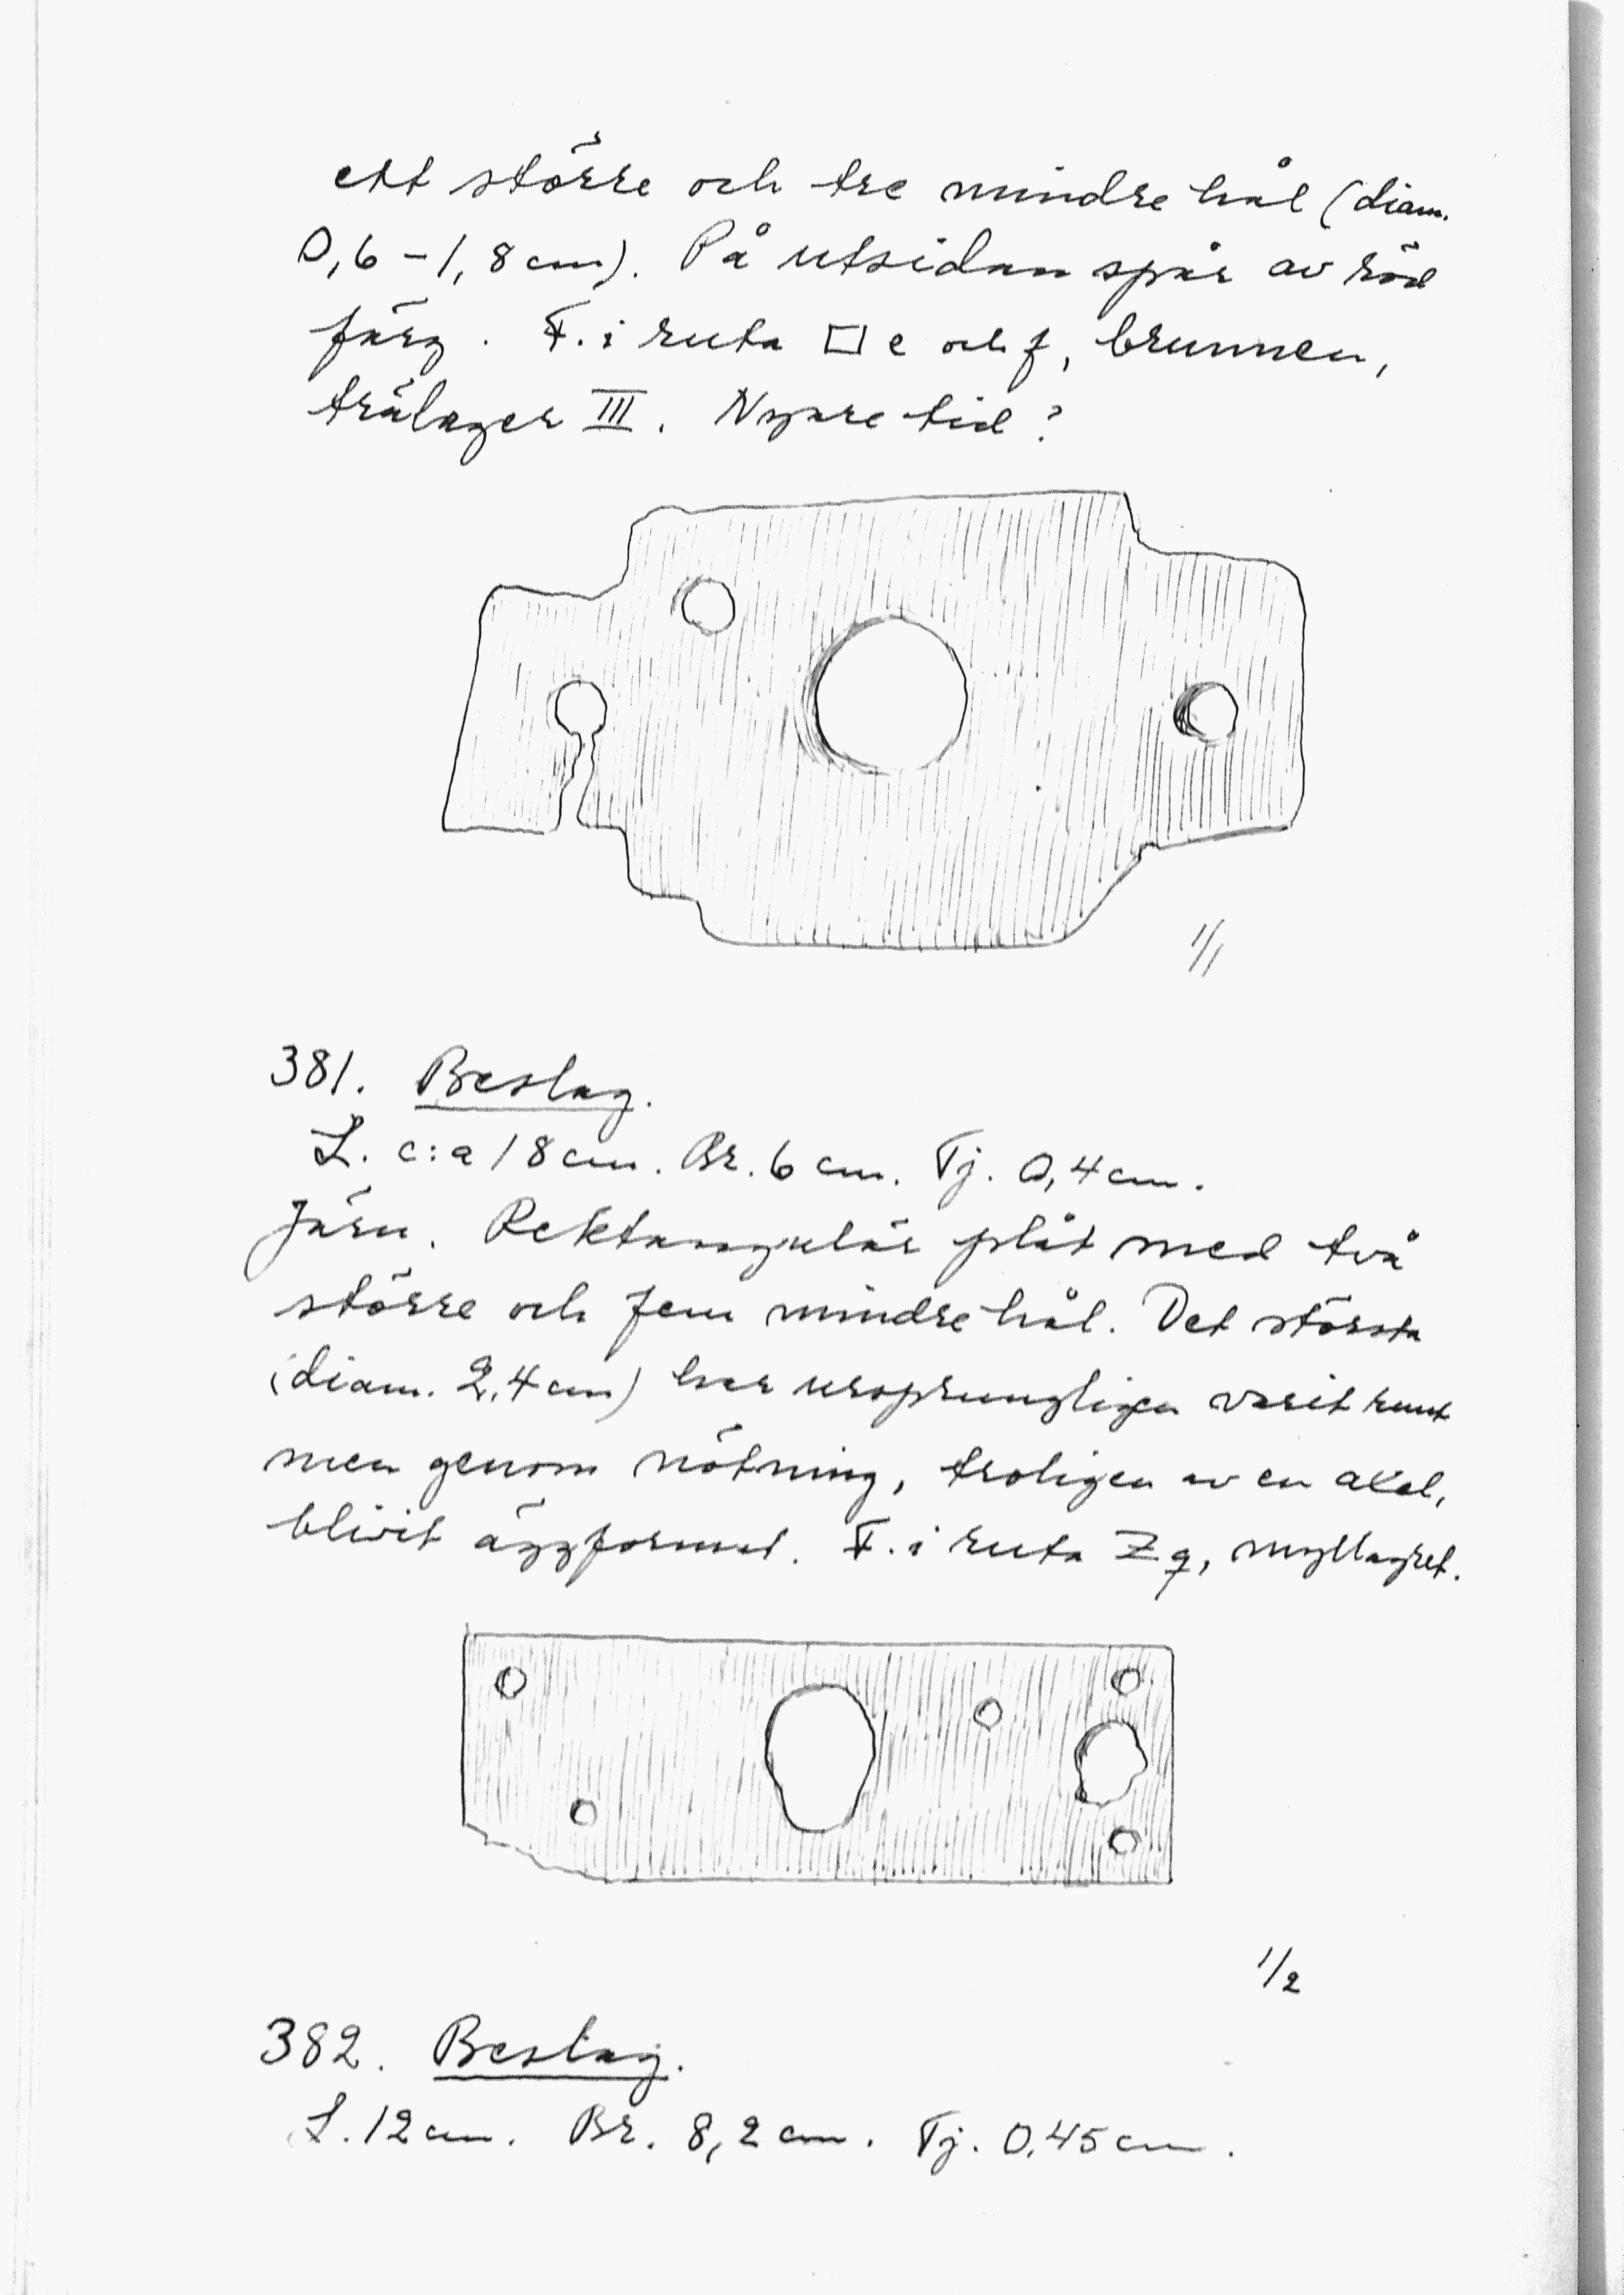 ett större och tre mindre hål (diam.
0,6 – 1,8 cm). På utsidan spår av röd
färg. F. i ruta □ e och f, brunnen,
trälager III. Nyare tid?
1/1
381. Beslag.
L. c:a 18 cm. Br. 6 cm. Tj. 0,4 cm.
Järn. Rektangulär plåt med två
större och fem mindre hål. Det största
(diam. 2,4 cm) har ursprungligen varit runt
men genom nötning, troligen av en axel,
blivit äggformat. F. i ruta Z q, myllagret.
1/2
382. Beslag.
L. 12 cm. Br. 8,2 cm. Tj. 0,45 cm.